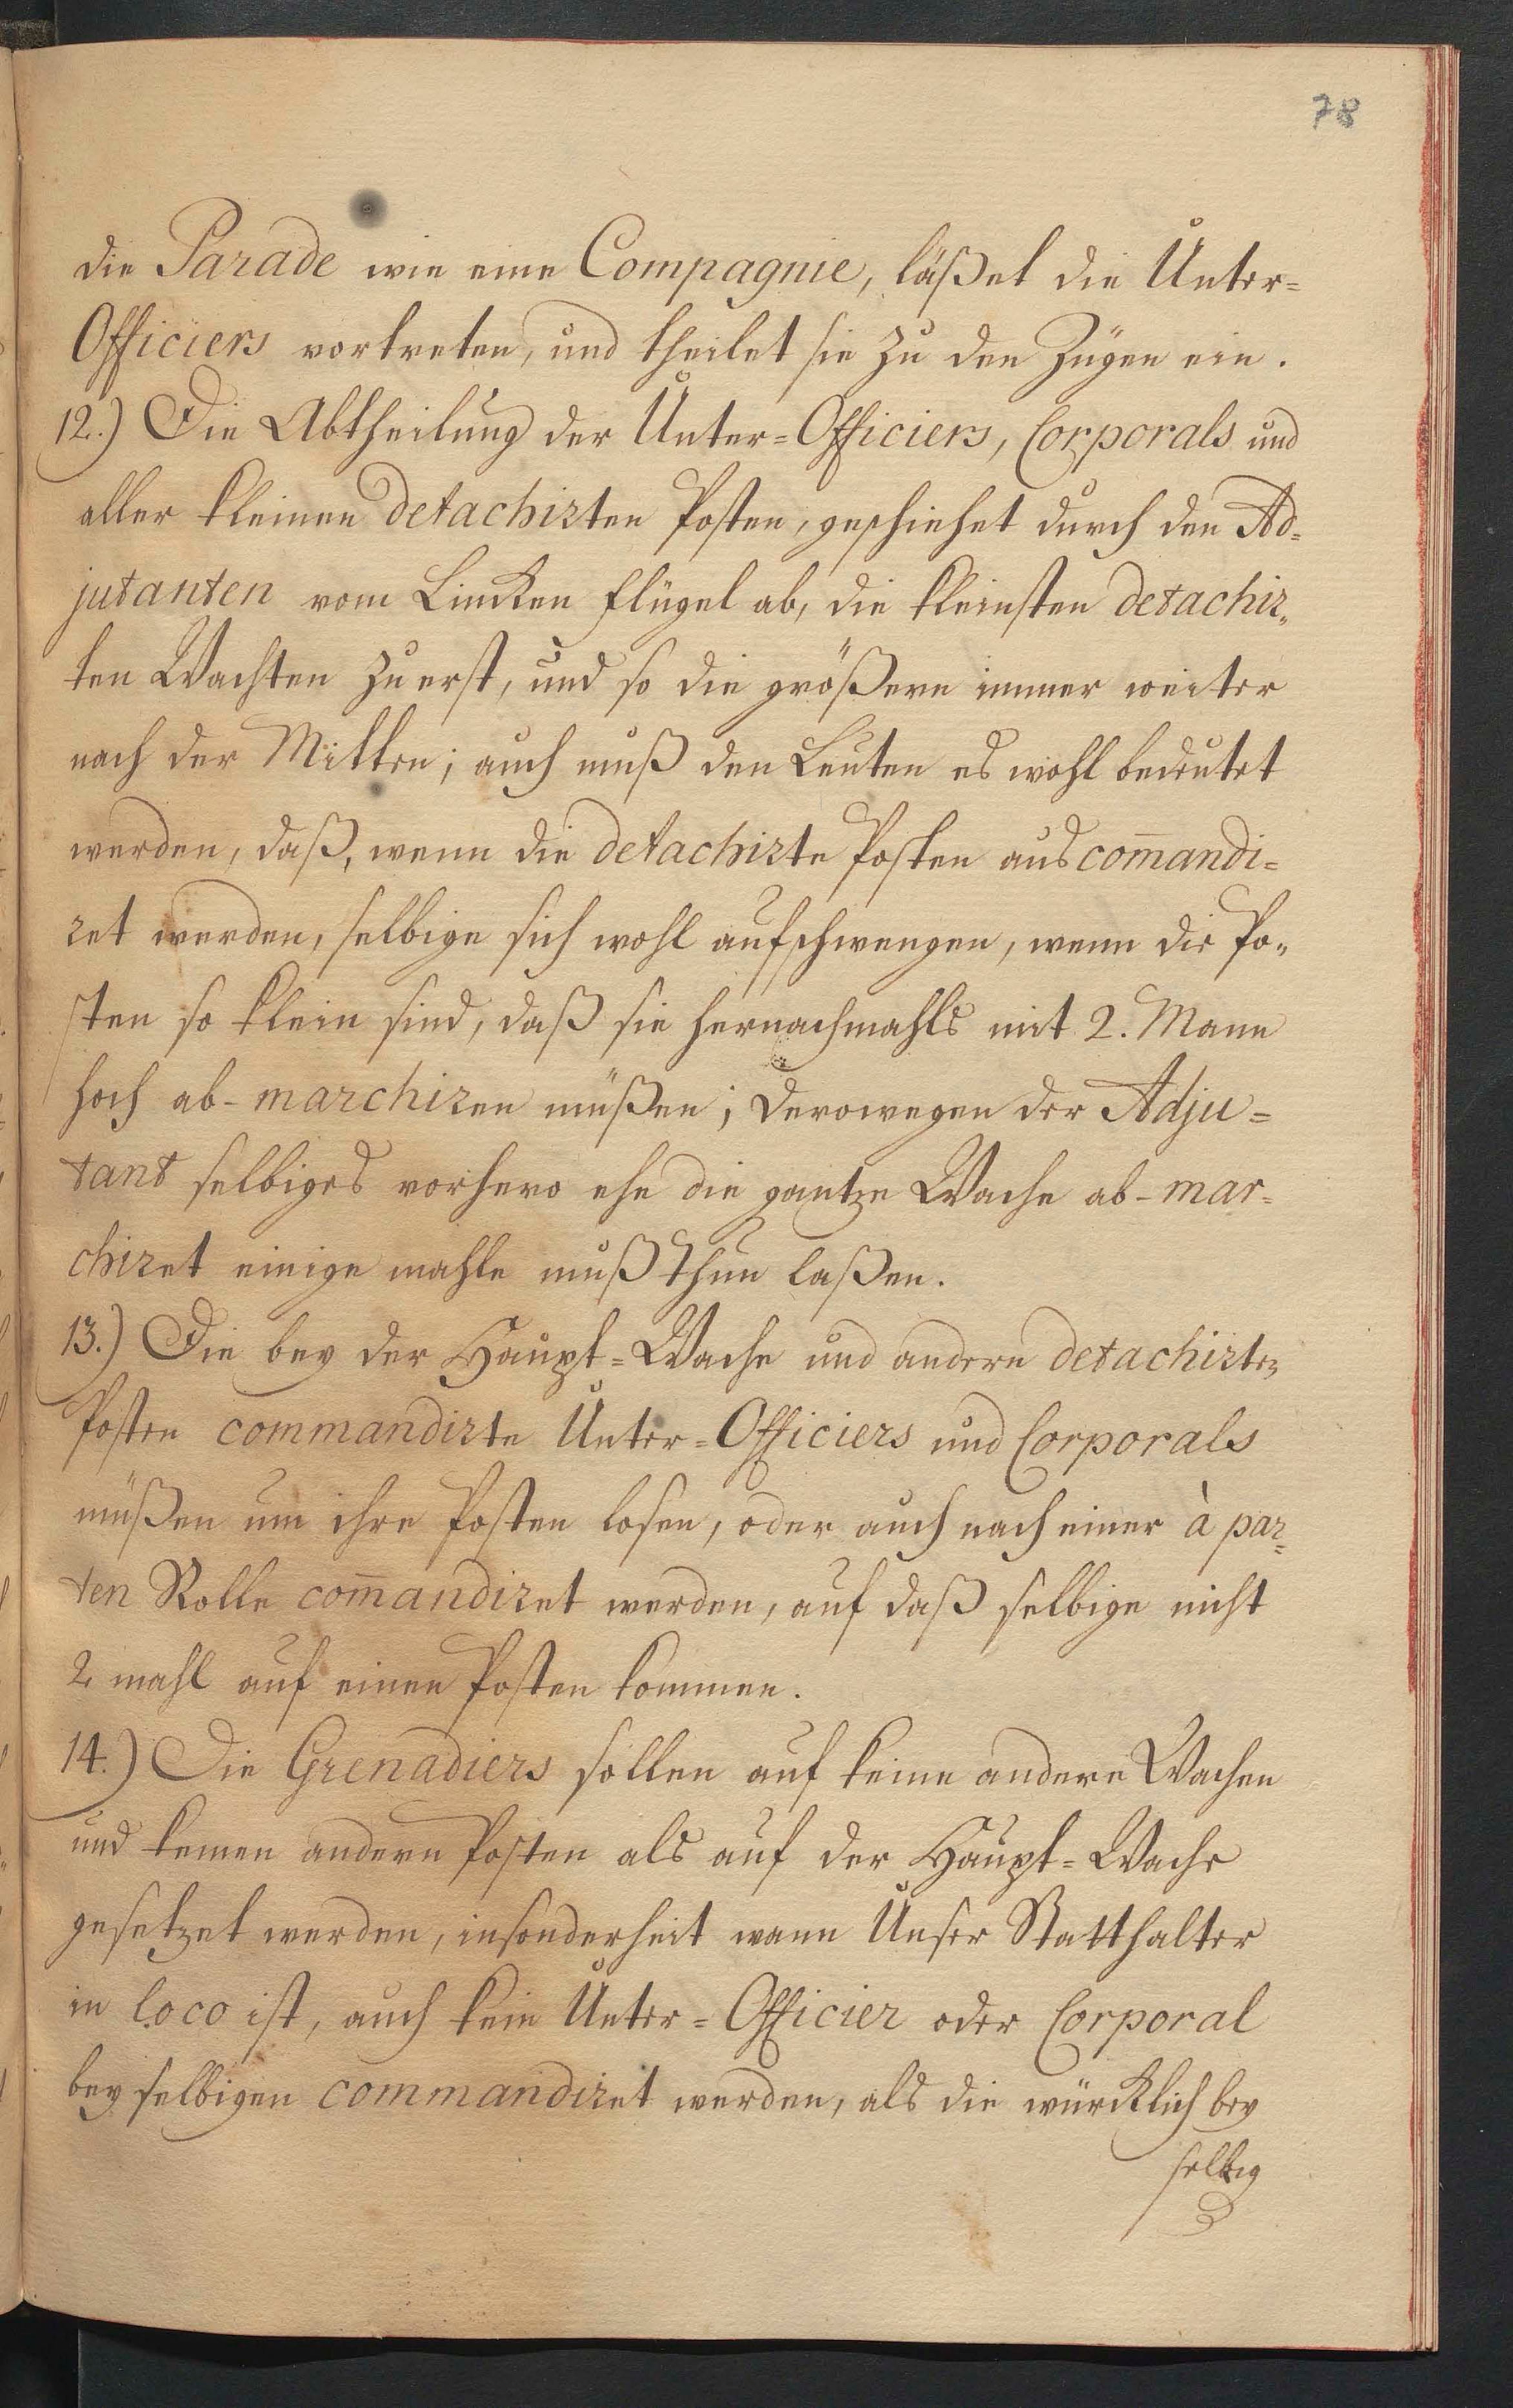 78
die Parade wie eine Compagnie, läßet die Unter=
Officiers vortreten, und theilet sie zu den Zügen ein.
12.) Die Abtheilung der Unter=Officiers, Corporals und
aller kleinen detachirten Posten, geschiehet durch den Ad=
jutanten vom Lincken Flügel ab, die kleinsten detachir=
ten Wachten zu erst, und so die größern immer weiter
nach der Mitten; auch muß den Leuten es wohl bedeutet
werden, daß, wenn die detachirte Posten aus com̄andi=
ret werden, selbige sich wohl aufschwengen, wenn die Po=
sten so klein sind, daß sie hernachmahls mit 2. Mann
hoch ab-marchiren müßen; derowegen der Adju=
tant selbiges vorhero ehe die gantze Wache ab-mar=
chiret einige mahle muß thun laßen.
13.) Die bey der Haupt=Wache und andern detachirten
Posten commandirte Unter=Officiers und Corporals
müßen um ihre Posten losen, oder auch nach einer à par=
ten Rolle com̄andiret werden, auf daß selbige nicht
2 mahl auf einen Posten kommen.
14.) Die Grenadiers sollen auf keine andere Wachen
und keinen andern Posten als auf der Haupt=Wache
gesetzet werden, insonderheit wann Unser Statthalter
in loco ist, auch kein Unter=Officier oder Corporal
bey selbigen commandiret werden, als die würcklich bey
selbig